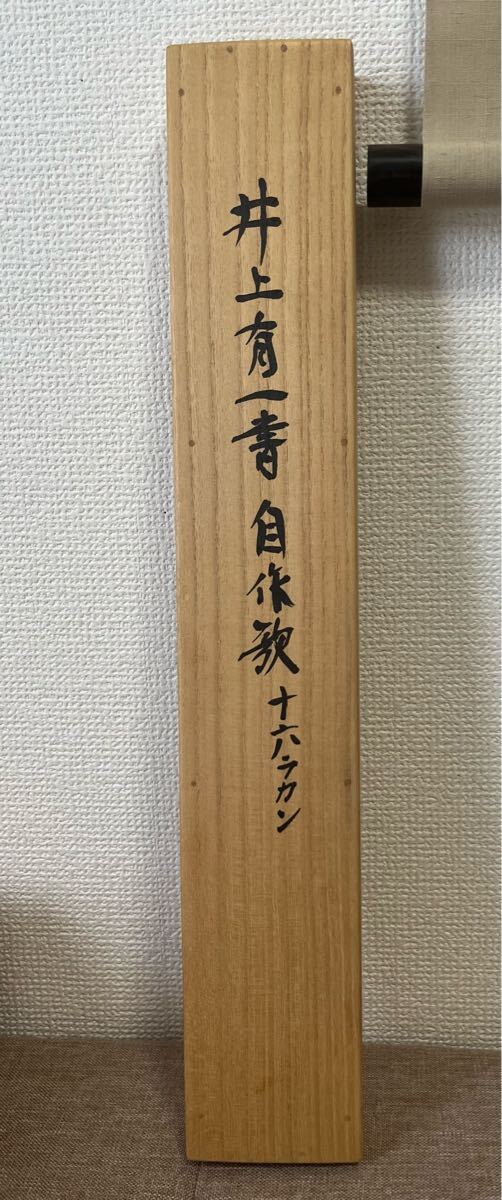 井上有一書 自作歌 十六ラカン